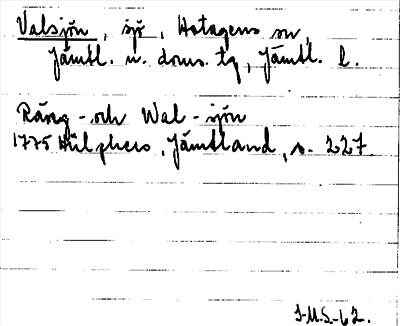 Valsjön, sjö, Hotagens sn,
Jämtl. n. doms. tg, Jämtl. l.
Räng- och Wal-sjön
1775 Hülphers, Jämtland, s. 227.
J.M.S-62.